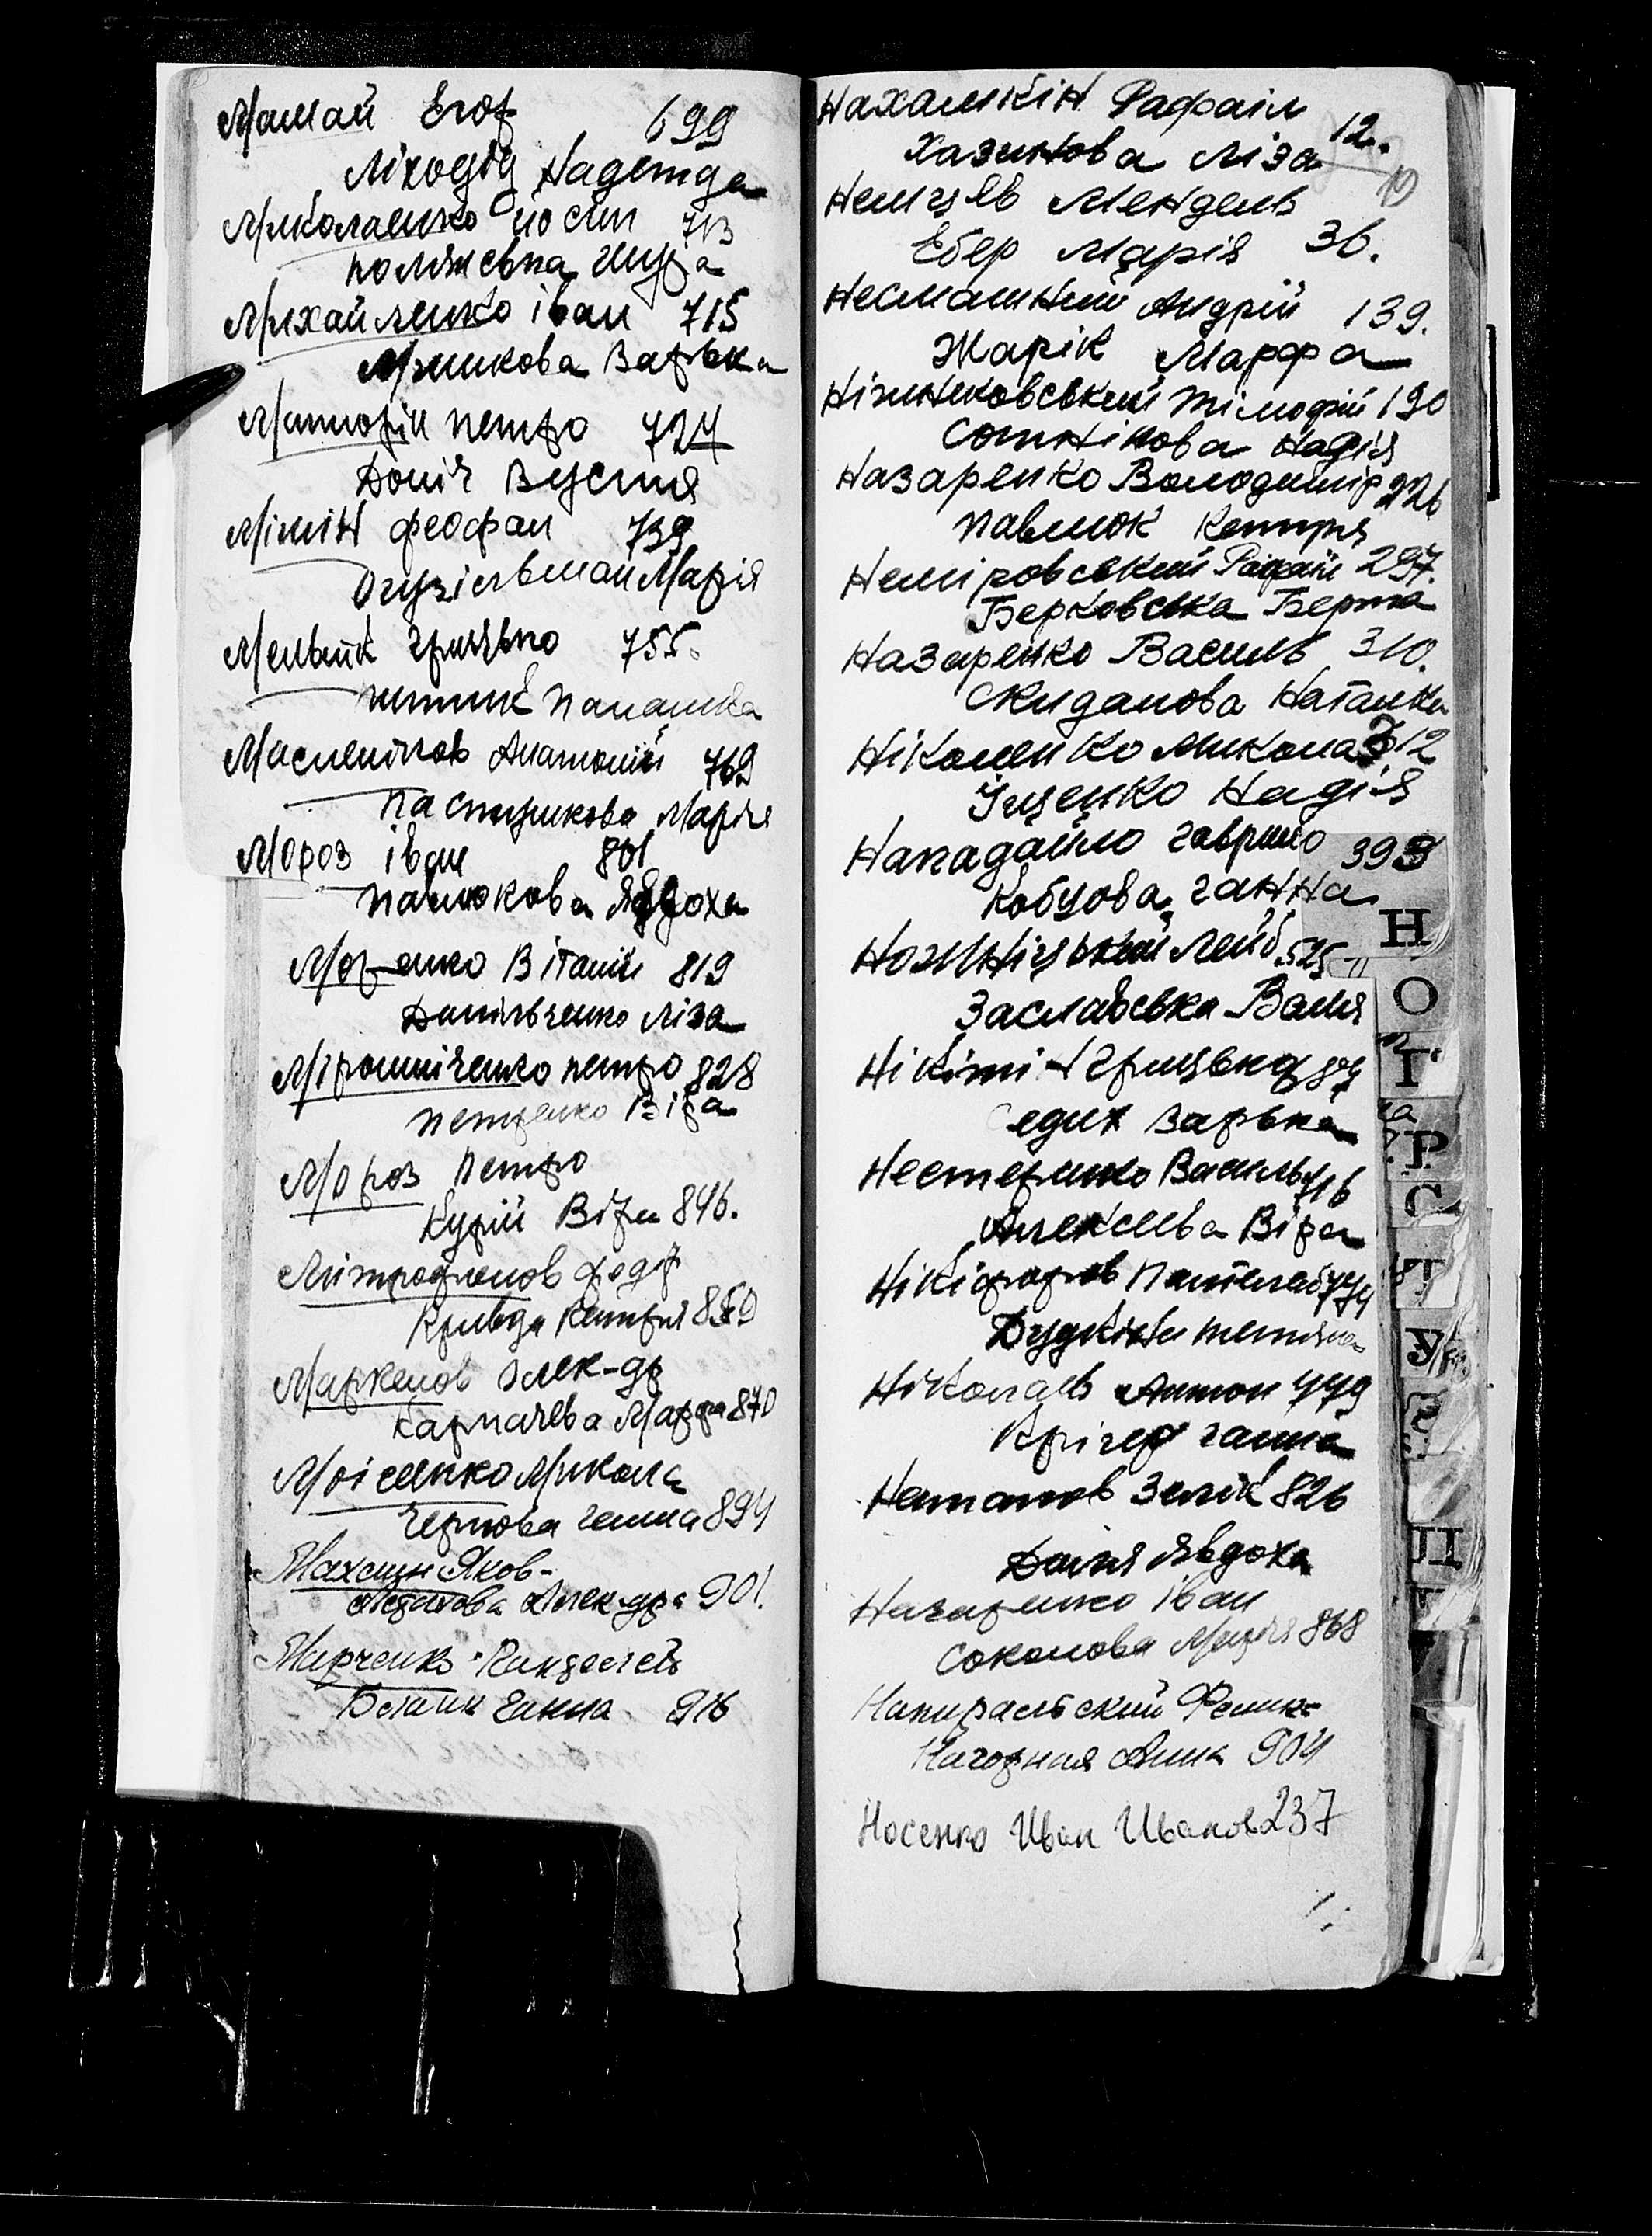 Мамай Егор 699
Ліходід Надежда
Миколаенко Йосип 713
Полянська Шура
Михайленко іван 715
Мринкова Варька
петро 724
Доніч Вустя
Мінін феофан 739
Марія
Мельник Грицько 755.
Палажка
Масленіков Анатолій 769
Пастушкова Марія
Мороз іван 801
Павлюкова Явдоха
Моренко Віталій 819
Данильченко Ліза
Мірошніченко петро 828
петренко Віра
Мороз петро
Курій Віра 846.
Мітрофанов федір
Кривда Катря 859
Маркелов Олек-др
Карпачева Марфа 870
Моісеєнко Микола
Чернова Ганна 894
Махацин Яков-
Астахова Алек-дра 901.
Марченко
Ганна 916
Нахамкін Рафаіл
Хазинова Ліза 12.
Немчїв Мендель
Ебер Марія 36.
Несмашний Андрій 139.
Жарік Марфа
Тімофій 190
Сотнікова Надія
Назаренко Володимір 226
Павлюк Катря
Неміровський Рафаїл 297.
Берковська Берта
Назаренко Василь 310.
Скиданова Наталка
Ніколенко Микола 312
Іщенко Надія
Нападайло Гаврило 393
Кобцова Ганна
Лейб 525
Заславська Валя
Нікітін Грицько
Седих Варька
Нестеренко Василь 716
Алексеева Віра
Нікіфоров Пантелей 774
Дудкіна Тетяна
Ніколаев Антон 779
Крігер Ганна
Натанов Зелік 826
Явдоха
Назаренко іван
Соколова Марія 868
Напиральский
Нагорная Анна 904
Носенко Иван Иванов 237
Н
О
П
Р
С
Т
У